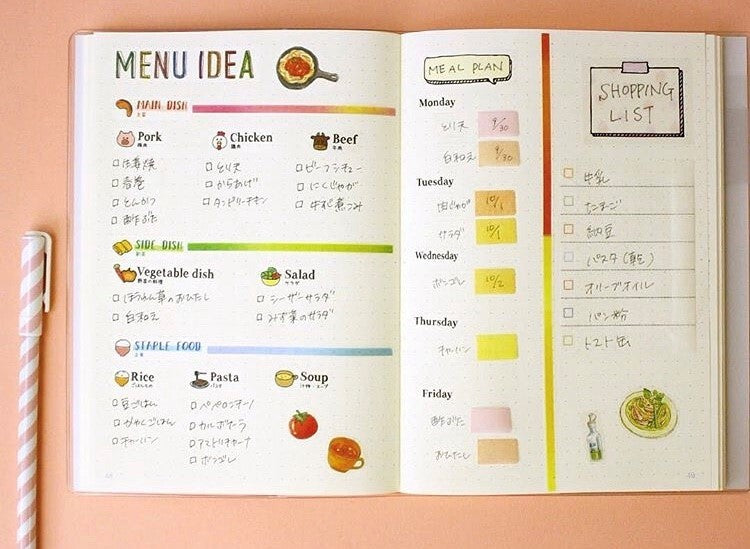 MENU IDEA
MAIN DISH
主菜
Pork
豚肉
生姜焼
春巻
とんかつ
酢ぶた
Chicken
鶏肉
とり天
からあげ
タンドリーチキン
Beef
牛肉
ビーフシチュー
にくじゃが
牛すじ煮こみ
SIDE DISH
副菜
Vegetable dish
野菜の料理
ほうれん草のおひたし
白和え
Salad
サラダ
シーザーサラダ
みず菜のサラダ
STAPLE FOOD
主食
Rice
ごはんもの
豆ごはん
かやくごはん
チャーハン
Pasta
パスタ
ペペロンチーノ
カルボナーラ
アマトリチャーナ
ボンゴレ
Soup
汁物・スープ
MEAL PLAN
Monday
とり天 9/30
白和え 9/30
Tuesday
肉じゃが 10/1
サラダ 10/1
Wednesday
ボンゴレ 10/2
Thursday
チャーハン
Friday
酢ぶた
おひたし
SHOPPING
LIST
牛乳
たまご
納豆
パスタ(乾)
オリーブオイル
パン粉
トマト缶